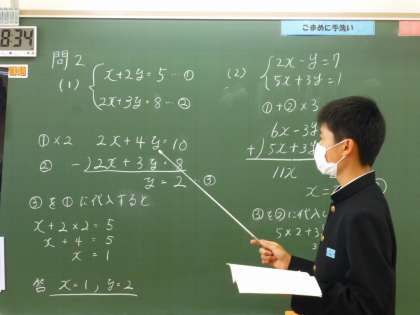 8:34
ごまめに手洗い
問2
(1) { x+2y=5…①
2x+3y=8…②
①×2 2x+4y=10
② -)2x+3y=8
y=2…③
③を①に代入すると
x+2×2=5
x+4=5
x=1
答 x=1, y=2
(2) { 2x-y=7
5x+3y=1
①+②×3
6x-3y
+)5x+3y
11x
x=
③を②に代入し
5×2+3